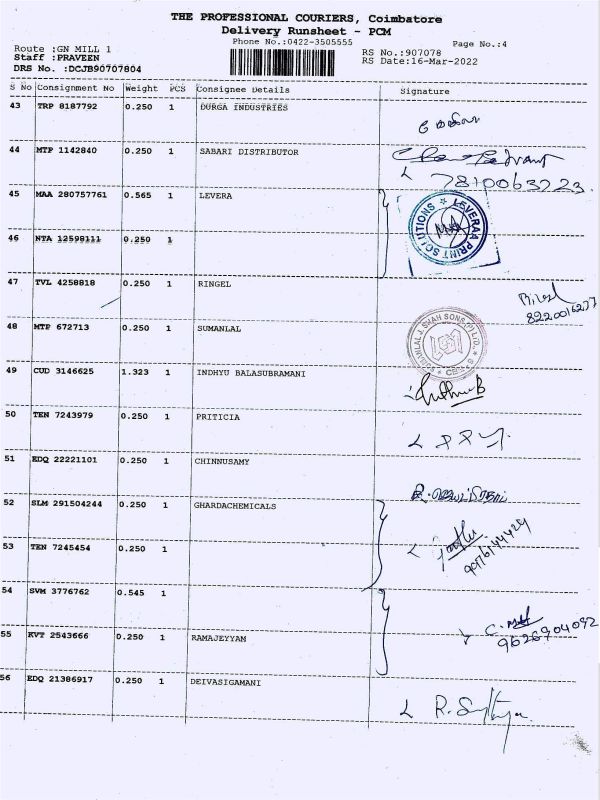 THE PROFESSIONAL COURIERS, Coimbatore
Delivery Runsheet - PCM
Phone No.:0422-3505555
Page No.:4
Route :GN MILL 1
RS No.:907078
Staff :PRAVEEN
RS Date:16-Mar-2022
DRS No. :DCJB90707804
S No Consignment No Weight PCS Consignee Details Signature
43 TRP 8187792 0.250 1 DURGA INDUSTRIES
44 MTP 1142840 0.250 1 SABARI DISTRIBUTOR
7810063223
45 MAA 280757761 0.565 1 LEVERA
LEVERAA PRINT SOLUTIONS
46 NTA 12598111 0.250 1
47 TVL 4258818 0.250 1 RINGEL
48 MTP 672713 0.250 1 SUMANLAL
SUMANLAL J. SHAH SONS (P) LTD.
49 CUD 3146625 1.323 1 INDHYU BALASUBRAMANI
50 TEN 7243979 0.250 1 PRITICIA
51 EDQ 22221101 0.250 1 CHINNUSAMY
52 SLM 291504244 0.250 1 GHARDACHEMICALS
53 TEN 7245454 0.250 1
54 SVM 3776762 0.545 1
9626904092
55 KVT 2543666 0.250 1 RAMAJEYYAM
56 EDQ 21386917 0.250 1 DEIVASIGAMANI